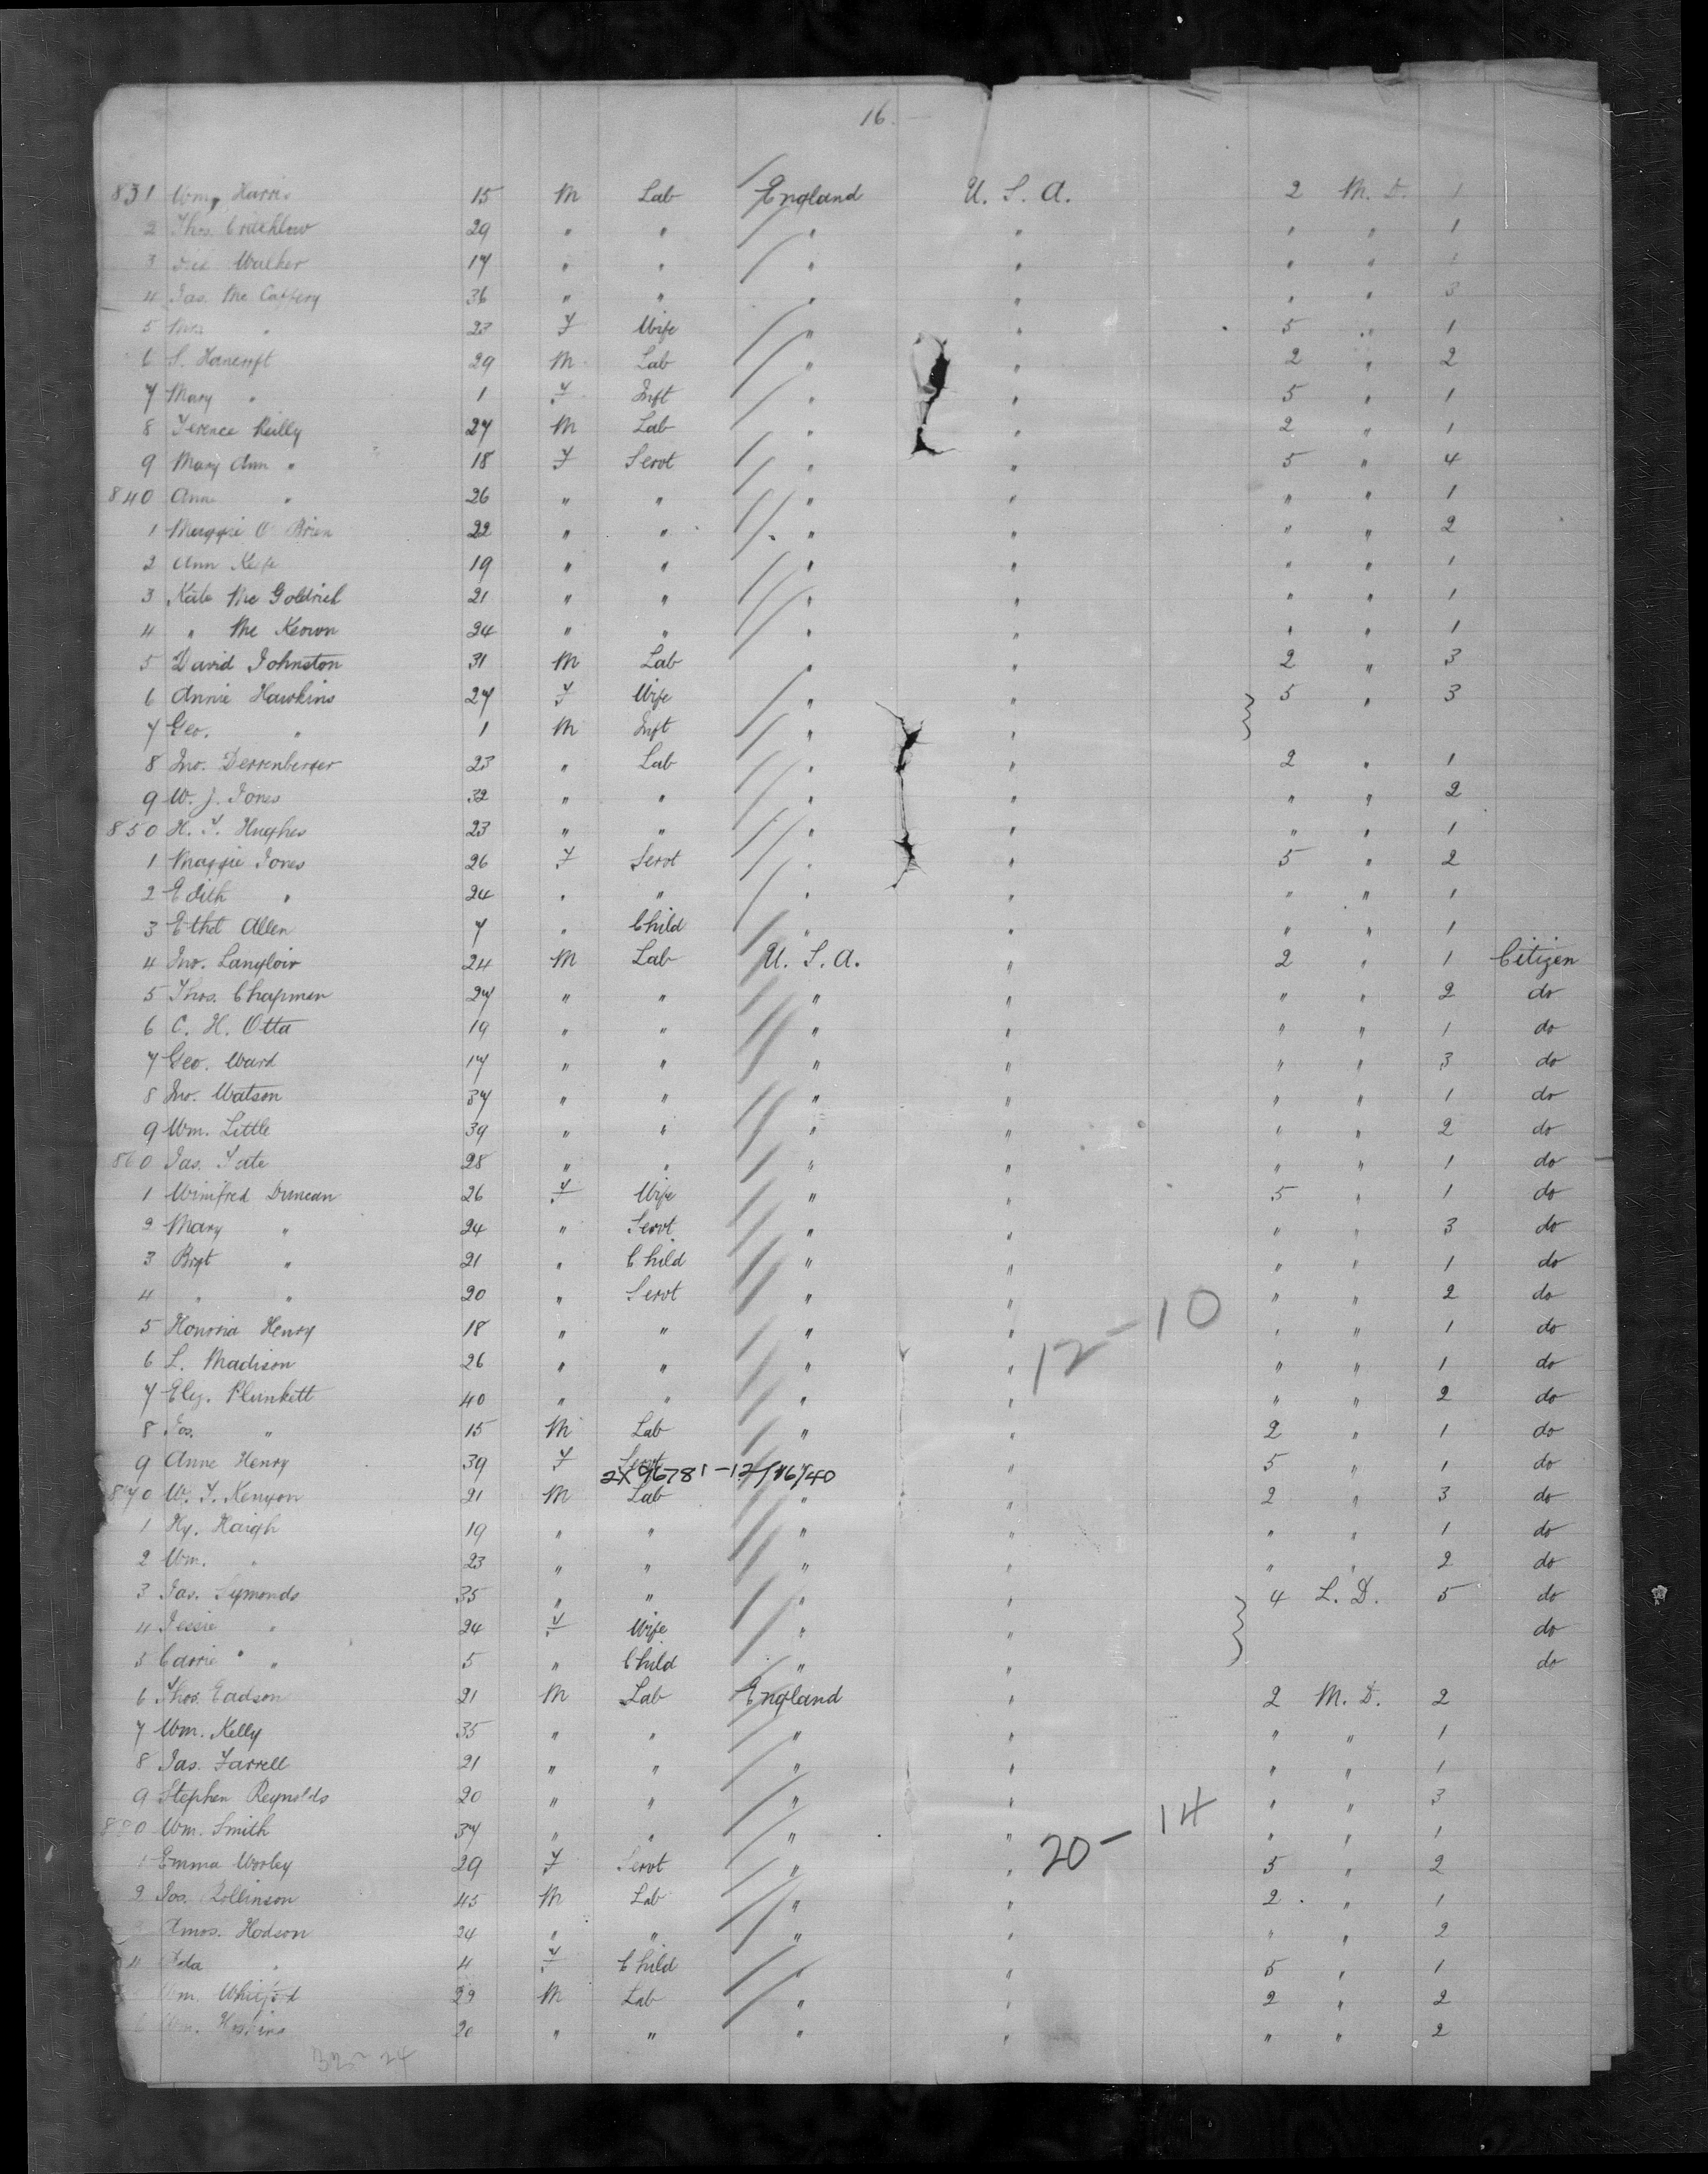 16.
831 Wm. Harris 15 M Lab England U. S. A. 2 M. D. 1
2 Thos. Crichlow 29 " " " " " " 1
3 Walker 17 " " " " " " 1
4 Jas. Mc Caffery 36 " " " " " " 3
5 Mrs " 23 F Wife " " 5 " 1
6 S. Hancroft 29 M Lab " " 2 " 2
7 Mary " 1 F Inft " " 5 " 1
8 Terence Reilly 27 M Lab " " 2 " 1
9 Mary Ann " 18 F Servt " " 5 " 4
840 Anne " 26 " " " " " " 1
1 Maggie O Brien 22 " " " " " " 2
2 Ann Keefe 19 " " " " " " 1
3 Kate Mc Goldrick 21 " " " " " " 1
4 " Mc Keown 24 " " " " " " 1
5 David Johnston 31 M Lab " " 2 " 3
6 Annie Hawkins 27 F Wife " " } 5 " 3
7 Geo. " 1 M Inft " "
8 Jno. Derrenberger 23 " Lab " " 2 " 1
9 W. J. Jones 32 " " " " " " 2
850 H. T. Hughes 23 " " " " " " 1
1 Maggie Jones 26 F Servt " " 5 " 2
2 Edith " 24 " " " " " " 1
3 Ethel Allen 7 " Child " " " " 1
4 Jno. Langlois 24 M Lab U. S. A. " 2 " 1 Citizen
5 Thos. Chapman 27 " " " " " " 2 do
6 C. H. Otta 19 " " " " " " 1 do
7 Geo. Ward 17 " " " " " " 3 do
8 Jno. Watson 37 " " " " " " 1 do
9 Wm. Little 39 " " " " " " 2 do
860 Jas. Tate 28 " " " " " " 1 do
1 Winifred Duncan 26 F Wife " " 5 " 1 do
2 Mary " 24 " Servt " " " " 3 do
3 Brgt " 21 " Child " " " " 1 do
4 " " 20 " Servt " " " " 2 do
12 - 10
5 Honoria Henry 18 " " " " " " 1 do
6 L. Madison 26 " " " " " " 1 do
7 Eliz. Plunkett 40 " " " " " " 2 do
8 Jos. " 15 M Lab " " 2 " 1 do
9 Anne Henry 39 F Servt " " 5 " 1 do
2X 96781-12/16/40
870 W. T. Kenyon 21 M Lab " " 2 " 3 do
1 Hy. Haigh 19 " " " " " " 1 do
2 Wm. " 23 " " " " " " 2 do
3 Jas. Symonds 35 " " " " } 4 L. D. 5 do
4 Jessie " 24 F Wife " " do
5 Carrie " " 5 " Child " " do
6 Thos. Eadson 21 M Lab England " 2 M. D. 2
7 Wm. Kelly 35 " " " " " " 1
8 Jas. Farrell 21 " " " " " " 1
9 Stephen Reynolds 20 " " " " " " 3
880 Wm. Smith 37 " " " " " " 1
20 - 14
1 Emma Worley 29 F Servt " " 5 " 2
2 Jos. Rollinson 45 M Lab " " 2 " 1
Amos. Hodson 24 " " " " " " 2
4 Ada " 4 F Child " " 5 " 1
Wm. 29 M Lab " " 2 " 2
6 Wm. Hoskins 20 " " " " " " 2